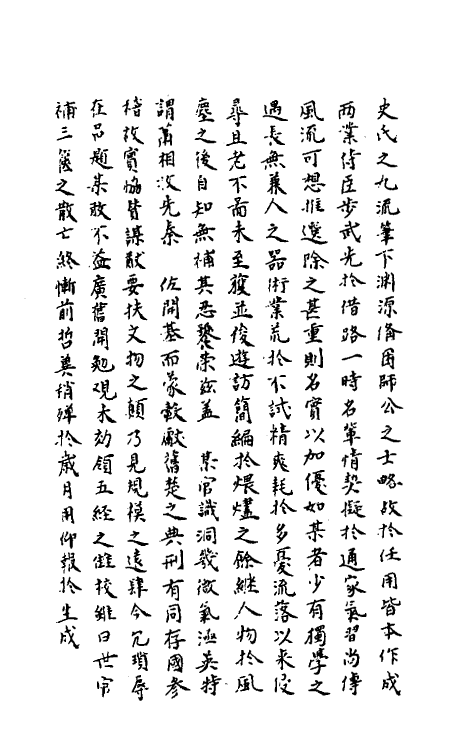 史氏之九流筆下淵源備囷師公之士略放於任用皆本作成
両業侍臣步武光於借路一時名輩情契擬於通家氣習尚傳
風流可想推選除之甚重則名實以加優如某者少有獨學之
遇長無兼人之器術業荒於不試精爽耗於多憂流落以来侵
尋且老不啚未至獲並俊遊訪簡編於煨燼之餘継人物於風
塵之後自知無補其忍饕榮兹盖 某官識洞幾微氣涵英特
謂蕭相收先秦 佐開基而蒙毅獻舊楚之典刑有同存國參
稽故實協賛謀猷要扶文物之顛乃見規模之遠肆今冗瑣辱
在品題某敢不益廣舊聞勉觀未効領五經之雠校雖曰世官
補三篋之散亡終慚前哲冀稍殫於歲月用仰報於生成